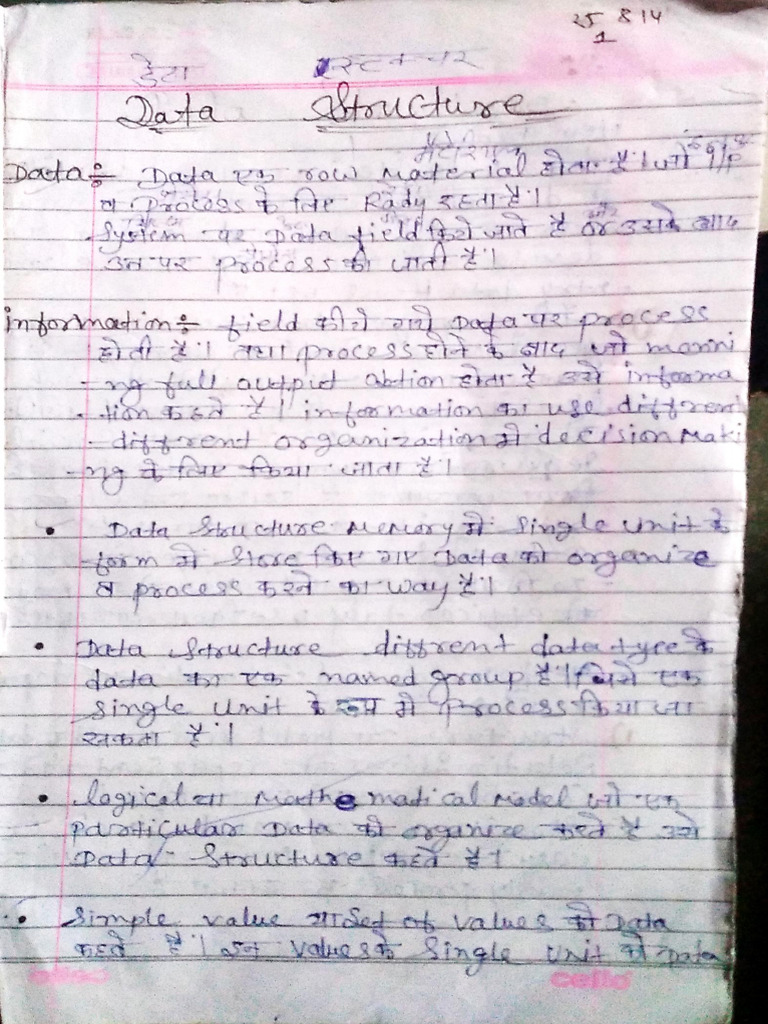 25 8 14
1
डेटा स्टकचर
Data Structure
मैटेरियल
Data ÷ Data एक row material होता है। जो I/P
व Process के लिए Rady रहता है।
System पर Data field किये जाते है और उसके बाद
उन पर process की जाती है।
information ÷ field कीये गये Data पर process
होती है। तथा process होने के बाद जो manni
-ng full होता है उसे informa
-tion कहते है। information का use diffrent
-diffrent organization मे decision Maki
-ng के लिए किया जाता है।
• Data Structure Memory मे Single Unit के
form मे Store किए गए Data को organize
व process करने का way है।
• Data Structure diffrent data tyce के
data का एक named group है। जिसे एक
Single Unit के रूप मे Process किया जा
सकता है।
• logical या Mathematical Model जो एक
particular Data को organize करते है उसे
Data Structure कहते है।
• Simple value या Set of values को Data
कहते है। इन values के Single Unit को Data
cello
cello